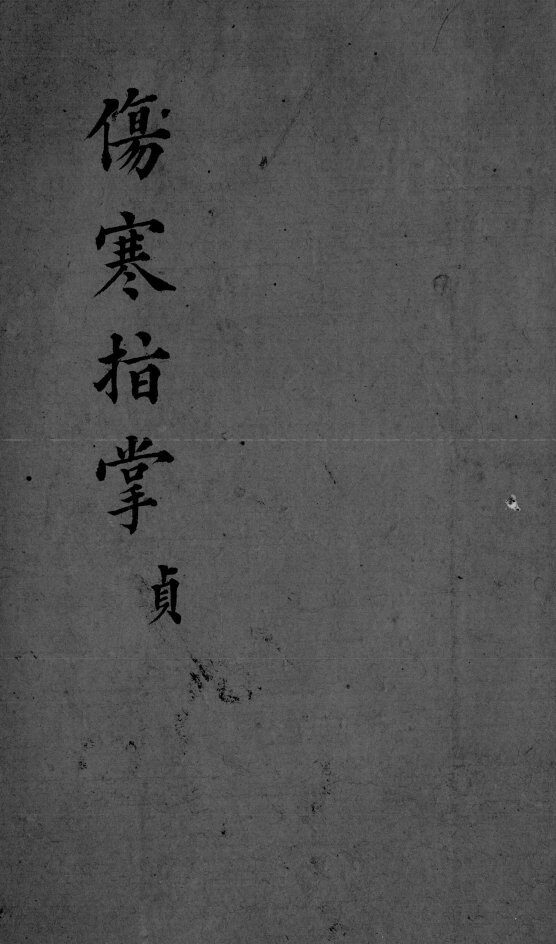 傷寒指掌
貞